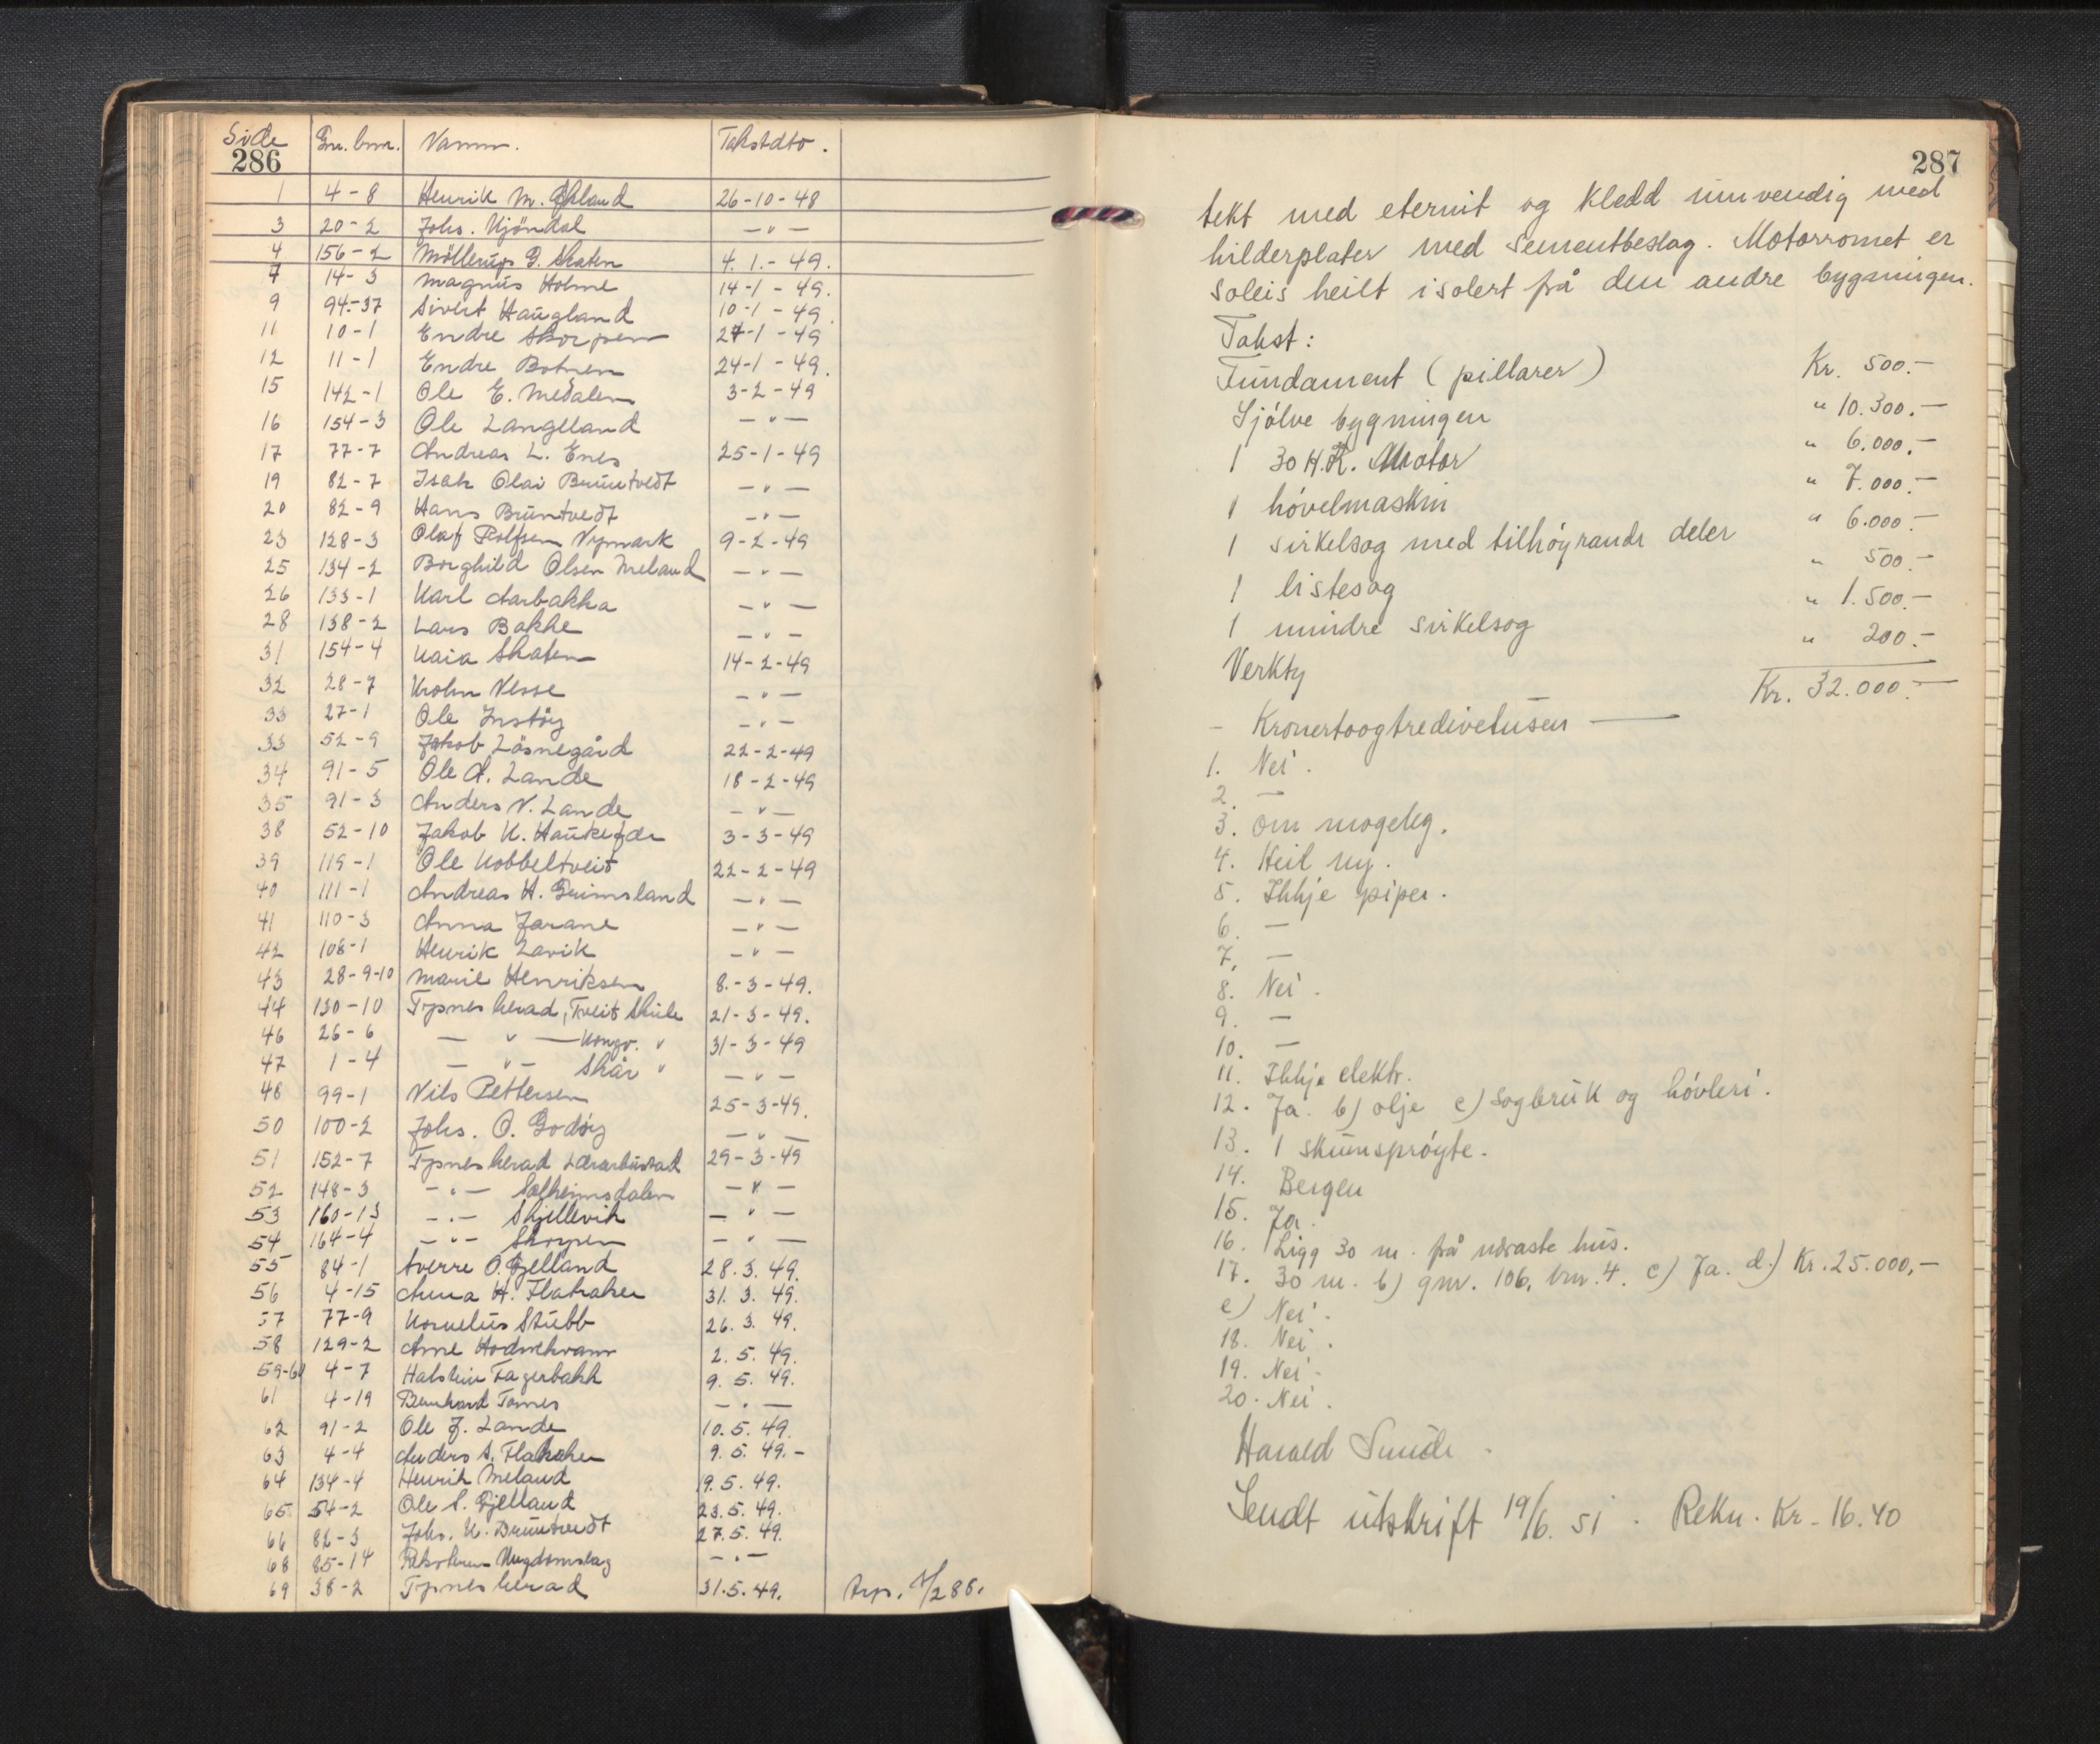 Side Gnr. bnr. Namn. Takstdto.
286
1 4-8 Henrik M. 26-10-48
3 20-2 Johs. Kjöndal —„—
4 156-2 Möllerup G. Skaten 4.1.-49.
7 14-3 Magnus Holme 14-1-49.
9 94-37 Sivert Haugland 10-1-49.
11 10-1 Endre Skorpen 24-1-49
12 11-1 Endre Botnen 24-1-49.
15 142-1 Ole E. Medalen 3-2-49
16 154-3 Ole Langeland —„—
17 77-7 Andreas L. Enes 25-1-49
19 82-7 Isak Olai Bruntvedt —„—
20 82-9 Hans Bruntvedt —„—
23 128-3 Olaf Rolfsen Nymark 9-2-49
25 134-2 Borghild Olsen Meland —„—
26 133-1 Karl Aarbakka —„—
28 138-2 Lars Bakke —„—
31 154-4 Kaia Skaten 14-2-49
32 28-7 Krohn Nesse —„—
33 27-1 Ole Instöy —„—
33 52-9 Jakob Lösnegård 22-2-49
34 91-5 Ole A. Lande 18-2-49
35 91-3 Anders N. Lande —„—
38 52-10 Jakob K. 3-3-49
39 119-1 Ole Kobbeltveit 22-2-49
40 111-1 Andreas H. Grimsland —„—
41 110-3 Anna Farane —„—
42 108-1 Henrik Lavik —„—
43 28-9-10 Marie Henriksen 8.-3-49.
44 130-10 Tysnes herad, Treit Skule 21-3-49.
46 26-6 — „ — Kongv. „ 31-3-49
47 1-4 — „ — Skår „ —„—
48 99-1 Nils Pettersen 25-3-49.
50 100-2 Johs. O. Godöy —„—
51 152-7 Tysnes herad Lærarbustad 29-3-49
52 148-3 —„— Solheimsdalen —„—
53 160-13 —„— Skjellevik —„—
54 164-4 —„— Skorpen —„—
55 84-1 Sverre O. Gjelland 28.3.49.
56 4-15 Anna H. Flatraker 31.3.49.
57 77-9 Kornelius Stubb 26.3.49.
58 129-2 Arne Hodnekvam 2.5.49.
59-60 4-7 Halstein Fagerbakk 9.5.49.
61 4-19 Bernhard Tornes —„—
62 91-2 Ole J. Lande 10.5.49.
63 4-4 Anders A. Flatraker 9.5.49.-
64 134-4 Henrik Meland 19.5.49.
65 54-2 Ole S. Gjelland 23.5.49.
66 82-3 Johs. K. Bruntvedt 27.5.49.
68 85-14 Ungdomslag —„—
69 38-2 Tysnes herad 31.5.49. /288.
287
tekt med eternit og kledd innvendig med
hilderplater med sementbeslag. Motorromet er
soleis heilt isolert frå den andre bygningen.
Takst:
Fundament (pillarer) Kr. 500.-
Sjölve bygningen " 10.300.-
1 30 H.K. Motor " 6.000.-
1 hövelmaskin " 7.000.-
1 sirkelsag med tilhöyrande deler " 6.000.-
1 listesag " 500.-
1 mindre sirkelsog " 1.500.-
Verkty " 200.-
Kr. 32.000.-
- Kronertoogtredivetusen —
1. Nei.
2. —
3. Om mogeleg.
4. Heil ny.
5. Ikkje piper.
6. —
7. —
8. Nei.
9. —
10. —
11. Ikkje elektr.
12. Ja. b) olje c) sagbruk og hövleri.
13. 1 skumspröyte.
14. Bergen
15. Ja.
16. Ligg 30 m. frå næraste hus.
17. 30 m. b) gnr. 106, bnr. 4. c) Ja. d.) Kr. 25.000,-
e) Nei.
18. Nei.
19. Nei.
20. Nei.
Harald Sunde.
Sendt utskrift 19/6. 51. Rekn. Kr. 16.40